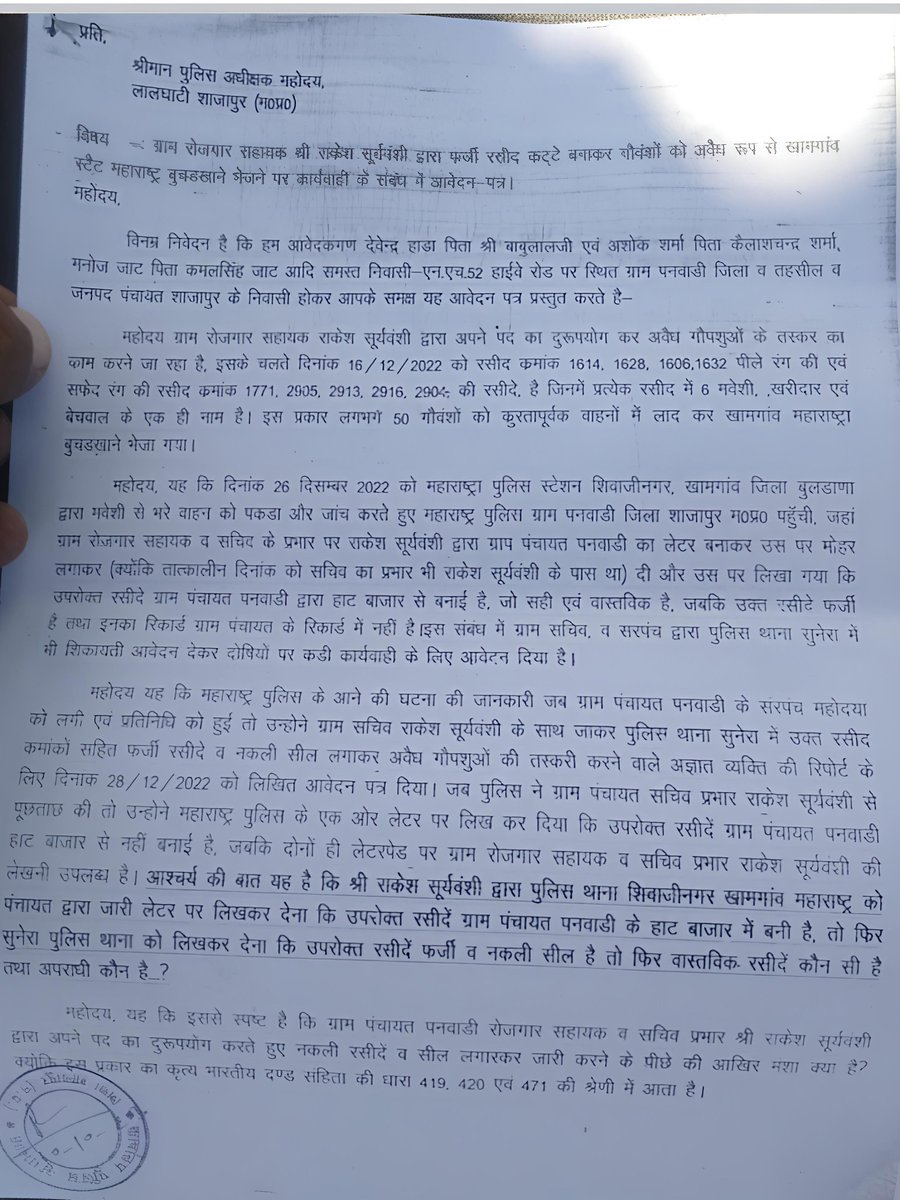 प्रति,
श्रीमान पुलिस अधीक्षक महोदय,
लालघाटी शाजापुर (म0प्र0)
विषय :– ग्राम रोजगार सहायक श्री राकेश सूर्यवंशी द्वारा फर्जी रसीद कट्टे बनाकर गौवंशों को अवैध रूप से खामगांव
स्टैट महाराष्ट्र बुचडखाने भेजने पर कार्यवाही के संबंध में आवेदन–पत्र।
महोदय,
विनम्र निवेदन है कि हम आवेदकगण देवेन्द्र हाडा पिता श्री बाबुलालजी एवं अशोक शर्मा पिता कैलाशचन्द्र शर्मा,
मनोज जाट पिता कमलसिंह जाट आदि समस्त निवासी–एन.एच.52 हाईवे रोड पर स्थित ग्राम पनवाडी जिला व तहसील व
जनपद पंचायत शाजापुर के निवासी होकर आपके समक्ष यह आवेदन पत्र प्रस्तुत करते है–
महोदय ग्राम रोजगार सहायक राकेश सूर्यवंशी द्वारा अपने पद का दुरूपयोग कर अवैध गौपशुओं के तस्कर का
काम करने जा रहा है, इसके चलते दिनांक 16/12/2022 को रसीद कमांक 1614, 1628, 1606,1632 पीले रंग की एवं
सफेद रंग की रसीद कमांक 1771, 2905, 2913, 2916, 2904 की रसीदे, है जिनमें प्रत्येक रसीद में 6 मवेशी, खरीदार एवं
बेचवाल के एक ही नाम है। इस प्रकार लगभग 50 गौवंशों को कुरतापूर्वक वाहनों में लाद कर खामगांव महाराष्ट्रा
बुचडखाने भेजा गया।
महोदय, यह कि दिनांक 26 दिसम्बर 2022 को महाराष्ट्रा पुलिस स्टेशन शिवाजीनगर, खामगांव जिला बुलडाणा
द्वारा मवेशी से भरे वाहन को पकडा और जांच करते हुए महाराष्ट्र पुलिस ग्राम पनवाडी जिला शाजापुर म0प्र0 पहुँची, जहां
ग्राम रोजगार सहायक व सचिव के प्रभार पर राकेश सूर्यवंशी द्वारा ग्राप पंचायत पनवाडी का लेटर बनाकर उस पर मोहर
लगाकर (क्योंकि तात्कालीन दिनांक को सचिव का प्रभार भी राकेश सूर्यवंशी के पास था) दी और उस पर लिखा गया कि
उपरोक्त रसीदे ग्राम पंचायत पनवाडी द्वारा हाट बाजार से बनाई है, जो सही एवं वास्तविक है, जबकि उक्त रसीदे फर्जी
है तथा इनका रिकार्ड ग्राम पंचायत के रिकार्ड में नहीं है।इस संबंध में ग्राम सचिव, व सरपंच द्वारा पुलिस थाना सुनेरा में
भी शिकायती आवेदन देकर दोषियों पर कडी कार्यवाही के लिए आवेदन दिया है।
महोदय यह कि महाराष्ट्र पुलिस के आने की घटना की जानकारी जब ग्राम पंचायत पनवाडी के सरपंच महोदया
को लगी एवं प्रतिनिधि को हुई तो उन्होने ग्राम सचिव राकेश सूर्यवंशी के साथ जाकर पुलिस थाना सुनेरा में उक्त रसीद
कमांकों सहित फर्जी रसीदे व नकली सील लगाकर अवैध गौपशुओं की तस्करी करने वाले अज्ञात व्यक्ति की रिपोर्ट के
लिए दिनांक 28/12/2022 को लिखित आवेदन पत्र दिया। जब पुलिस ने ग्राम पंचायत सचिव प्रभार राकेश सूर्यवंशी से
पूछताछ की तो उन्होने महाराष्ट्र पुलिस के एक ओर लेटर पर लिख कर दिया कि उपरोक्त रसीदें ग्राम पंचायत पनवाडी
हाट बाजार से नहीं बनाई है, जबकि दोनों ही लेटरपेड पर ग्राम रोजगार सहायक व सचिव प्रभार राकेश सूर्यवंशी की
लेखनी उपलब्ध है। आश्चर्य की बात यह है कि श्री राकेश सूर्यवंशी द्वारा पुलिस थाना शिवाजीनगर खामगांव महाराष्ट्र को
पंचायत द्वारा जारी लेटर पर लिखकर देना कि उपरोक्त रसीदें ग्राम पंचायत पनवाडी के हाट बाजार में बनी है, तो फिर
सुनेरा पुलिस थाना को लिखकर देना कि उपरोक्त रसीदें फर्जी व नकली सील है तो फिर वास्तविक रसीदें कौन सी है
तथा अपराधी कौन है..?
महोदय, यह कि इससे स्पष्ट है कि ग्राम पंचायत पनवाडी रोजगार सहायक व सचिव प्रभार श्री राकेश सूर्यवंशी
द्वारा अपने पद का दुरूपयोग करते हुए नकली रसीदें व सील लगारकर जारी करने के पीछे की आखिर मंशा क्या है?
क्योंकि इस प्रकार का कृत्य भारतीय दण्ड संहिता की धारा 419, 420 एवं 471 की श्रेणी में आता है।